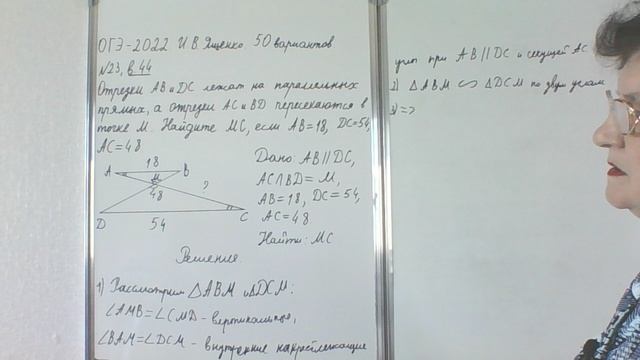 ОГЭ-2022 И.В.Ященко 50 вариантов
№23, в.44
Отрезки AB и DC лежат на параллельных
прямых, а отрезки AC и BD пересекаются в
точке M. Найдите MC, если AB=18, DC=54,
AC=48
18
A B
M
?
48
D C
54
Дано: AB∥DC,
AC∩BD=M,
AB=18, DC=54,
AC=48
Найти: MC
Решение.
1) Рассмотрим △ABM и △DCM:
∠AMB=∠CMD - вертикальные,
∠BAM=∠DCM - внутренние накрест лежащие
углы при AB∥DC и секущей AC
2) △ABM ∽ △DCM по двум углам
3) =>